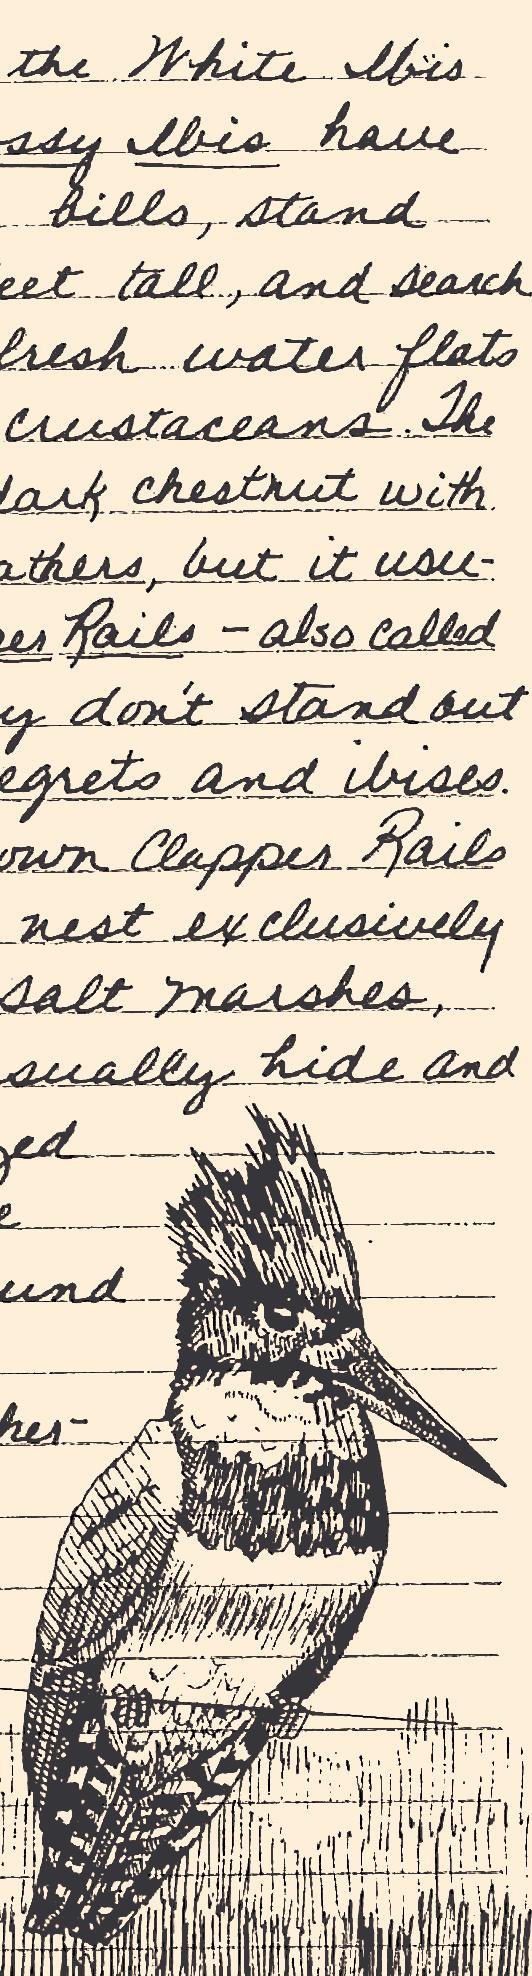 the White Ibis
ssy Ibis have
bills, stand
eet tall, and search
fresh water flats
crustaceans. The
dark chestnut with
athers, but it usu-
er Rails - also called
y don't stand out
egrets and ibises.
own Clapper Rails
nest exclusively
salt marshes,
sually hide and
zed
e
und
her-